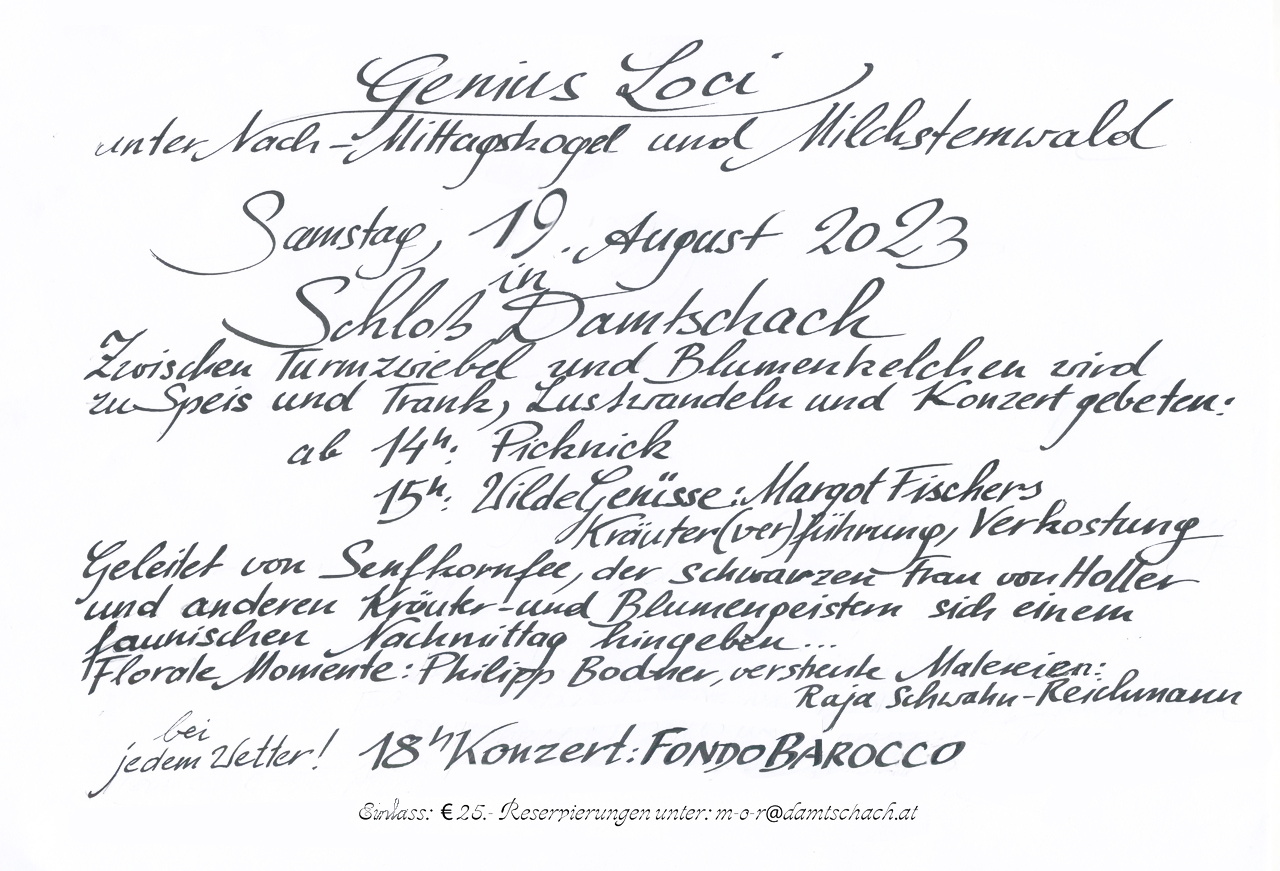 Genius Loci
unter Nach-Mittagskogel und Milchsternwald
Samstag, 19. August 2023
in
Schloß Damtschach
Zwischen Turmzwiebel und Blumenkelchen wird
zu Speis und Trank, Lustwandeln und Konzert gebeten:
ab 14h: Picknick
15h: Wilde Genüsse: Margot Fischers
Kräuter(ver)führung, Verkostung
Geleitet von Senfkornfee, der schwarzen Frau von Holler
und anderen Kräuter- und Blumengeistern sich einem
faunischen Nachmittag hingeben...
Florale Momente: Philipp Bodner, versteckte Malereien:
Raja Schwahn-Reichmann
bei
jedem Wetter! 18h Konzert: FONDO BAROCCO
Einlass: € 25.- Reservierungen unter: m-o-r@damtschach.at